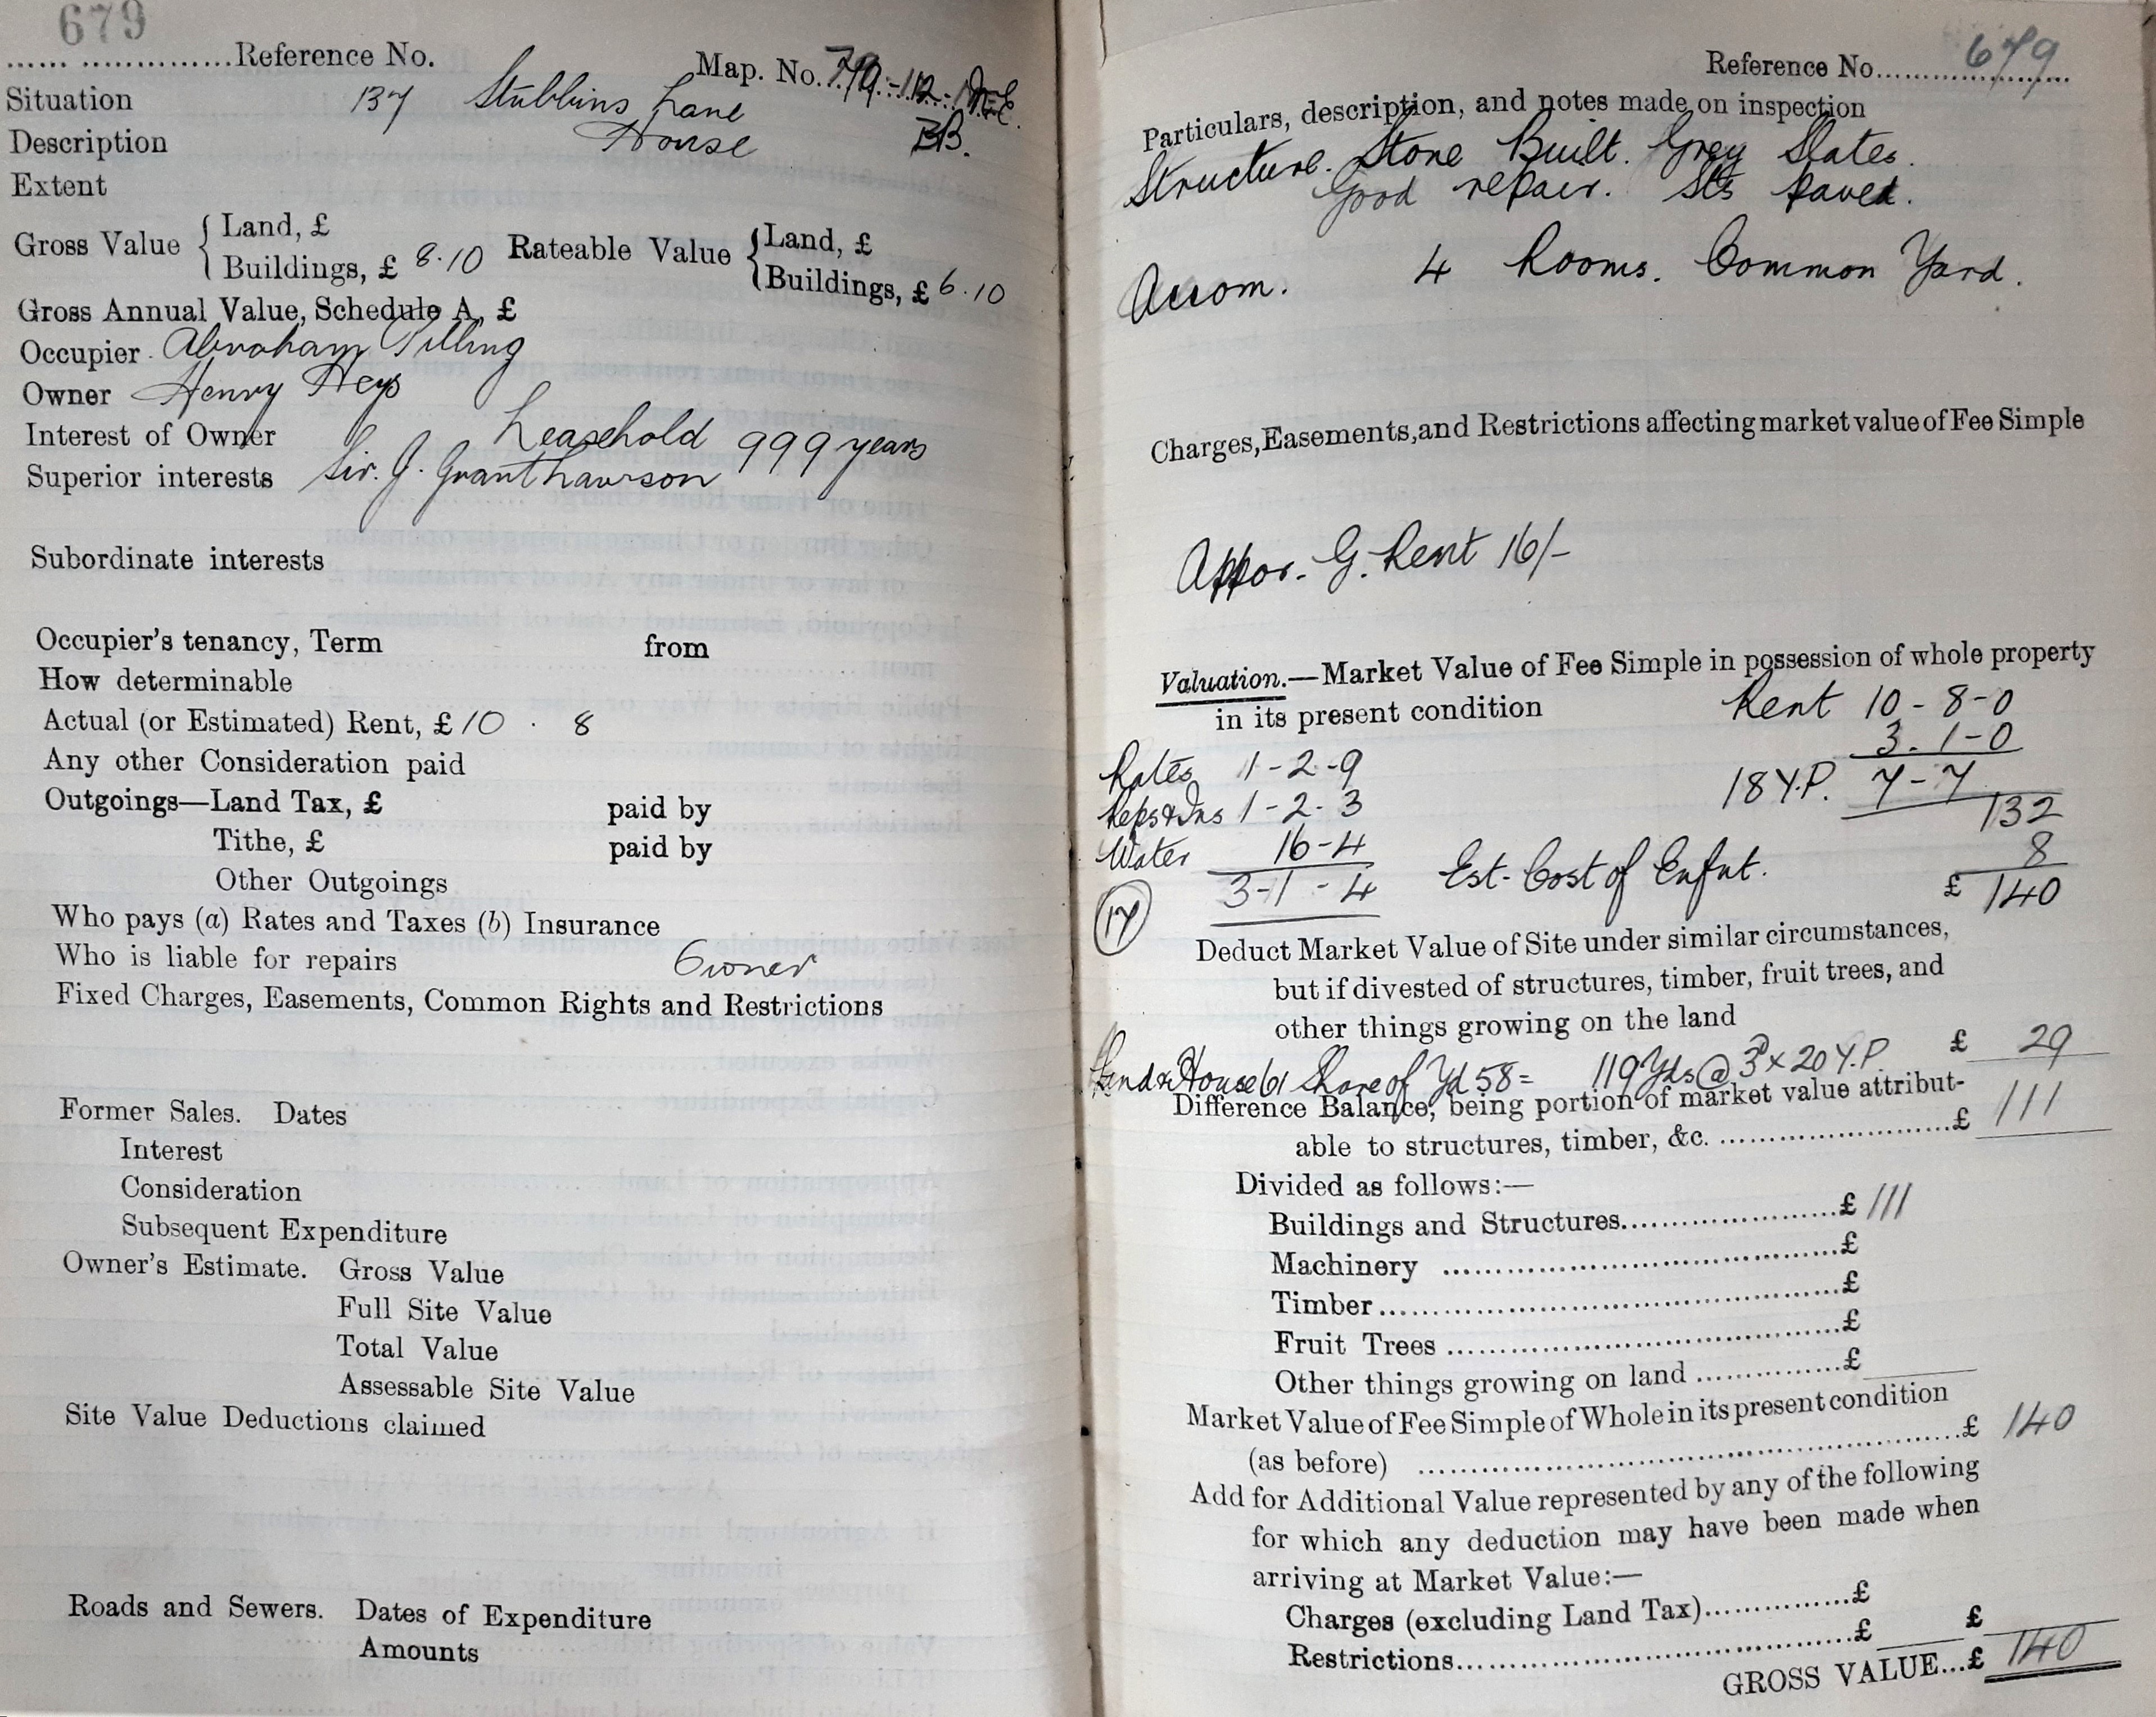 679
...... ...............Reference No.
Map. No. 79.-12-N.E.
Situation 137 Stubbins Lane
Description House BB.
Extent
Gross Value { Land, £
Buildings, £ 8.10
Rateable Value { Land, £
Buildings, £ 6.10
Gross Annual Value, Schedule A, £
Occupier Abraham Pilling
Owner Henry Heys
Interest of Owner Leasehold 999 years
Superior interests Sir. J. Grant Lawson
Subordinate interests
Occupier's tenancy, Term from
How determinable
Actual (or Estimated) Rent, £ 10 . 8
Any other Consideration paid
Outgoings—Land Tax, £ paid by
Tithe, £ paid by
Other Outgoings
Who pays (a) Rates and Taxes (b) Insurance
Who is liable for repairs Owner
Fixed Charges, Easements, Common Rights and Restrictions
Former Sales. Dates
Interest
Consideration
Subsequent Expenditure
Owner's Estimate. Gross Value
Full Site Value
Total Value
Assessable Site Value
Site Value Deductions claimed
Roads and Sewers. Dates of Expenditure
Amounts
Reference No. 679
Particulars, description, and notes made on inspection
Structure. Stone Built. Grey Slates.
Good repair. Sts paved.
Accom. 4 Rooms. Common Yard.
Charges, Easements, and Restrictions affecting market value of Fee Simple
Appor. G. Rent 16/-
Valuation.—Market Value of Fee Simple in possession of whole property
in its present condition Rent 10-8-0
3.1-0
Rates 1-2-9 18 Y.P. 7-7
Reps & Ins 1-2-3 132
Water 16-4 8
3-1-4 Est. Cost of Enfnt. £ 140
17
Deduct Market Value of Site under similar circumstances,
but if divested of structures, timber, fruit trees, and
other things growing on the land £ 29
Land & House 61 Share of Yd 58 = 119 Yds @ 3d x 20 Y.P.
Difference Balance, being portion of market value attribut-
able to structures, timber, &c. ..........................£ 111
Divided as follows:—
Buildings and Structures......................£ 111
Machinery ......................£
Timber......................£
Fruit Trees ......................£
Other things growing on land ...............£
Market Value of Fee Simple of Whole in its present condition
(as before) ......................£ 140
Add for Additional Value represented by any of the following
for which any deduction may have been made when
arriving at Market Value:—
Charges (excluding Land Tax)...............£
Restrictions......................£ £
GROSS VALUE...£ 140